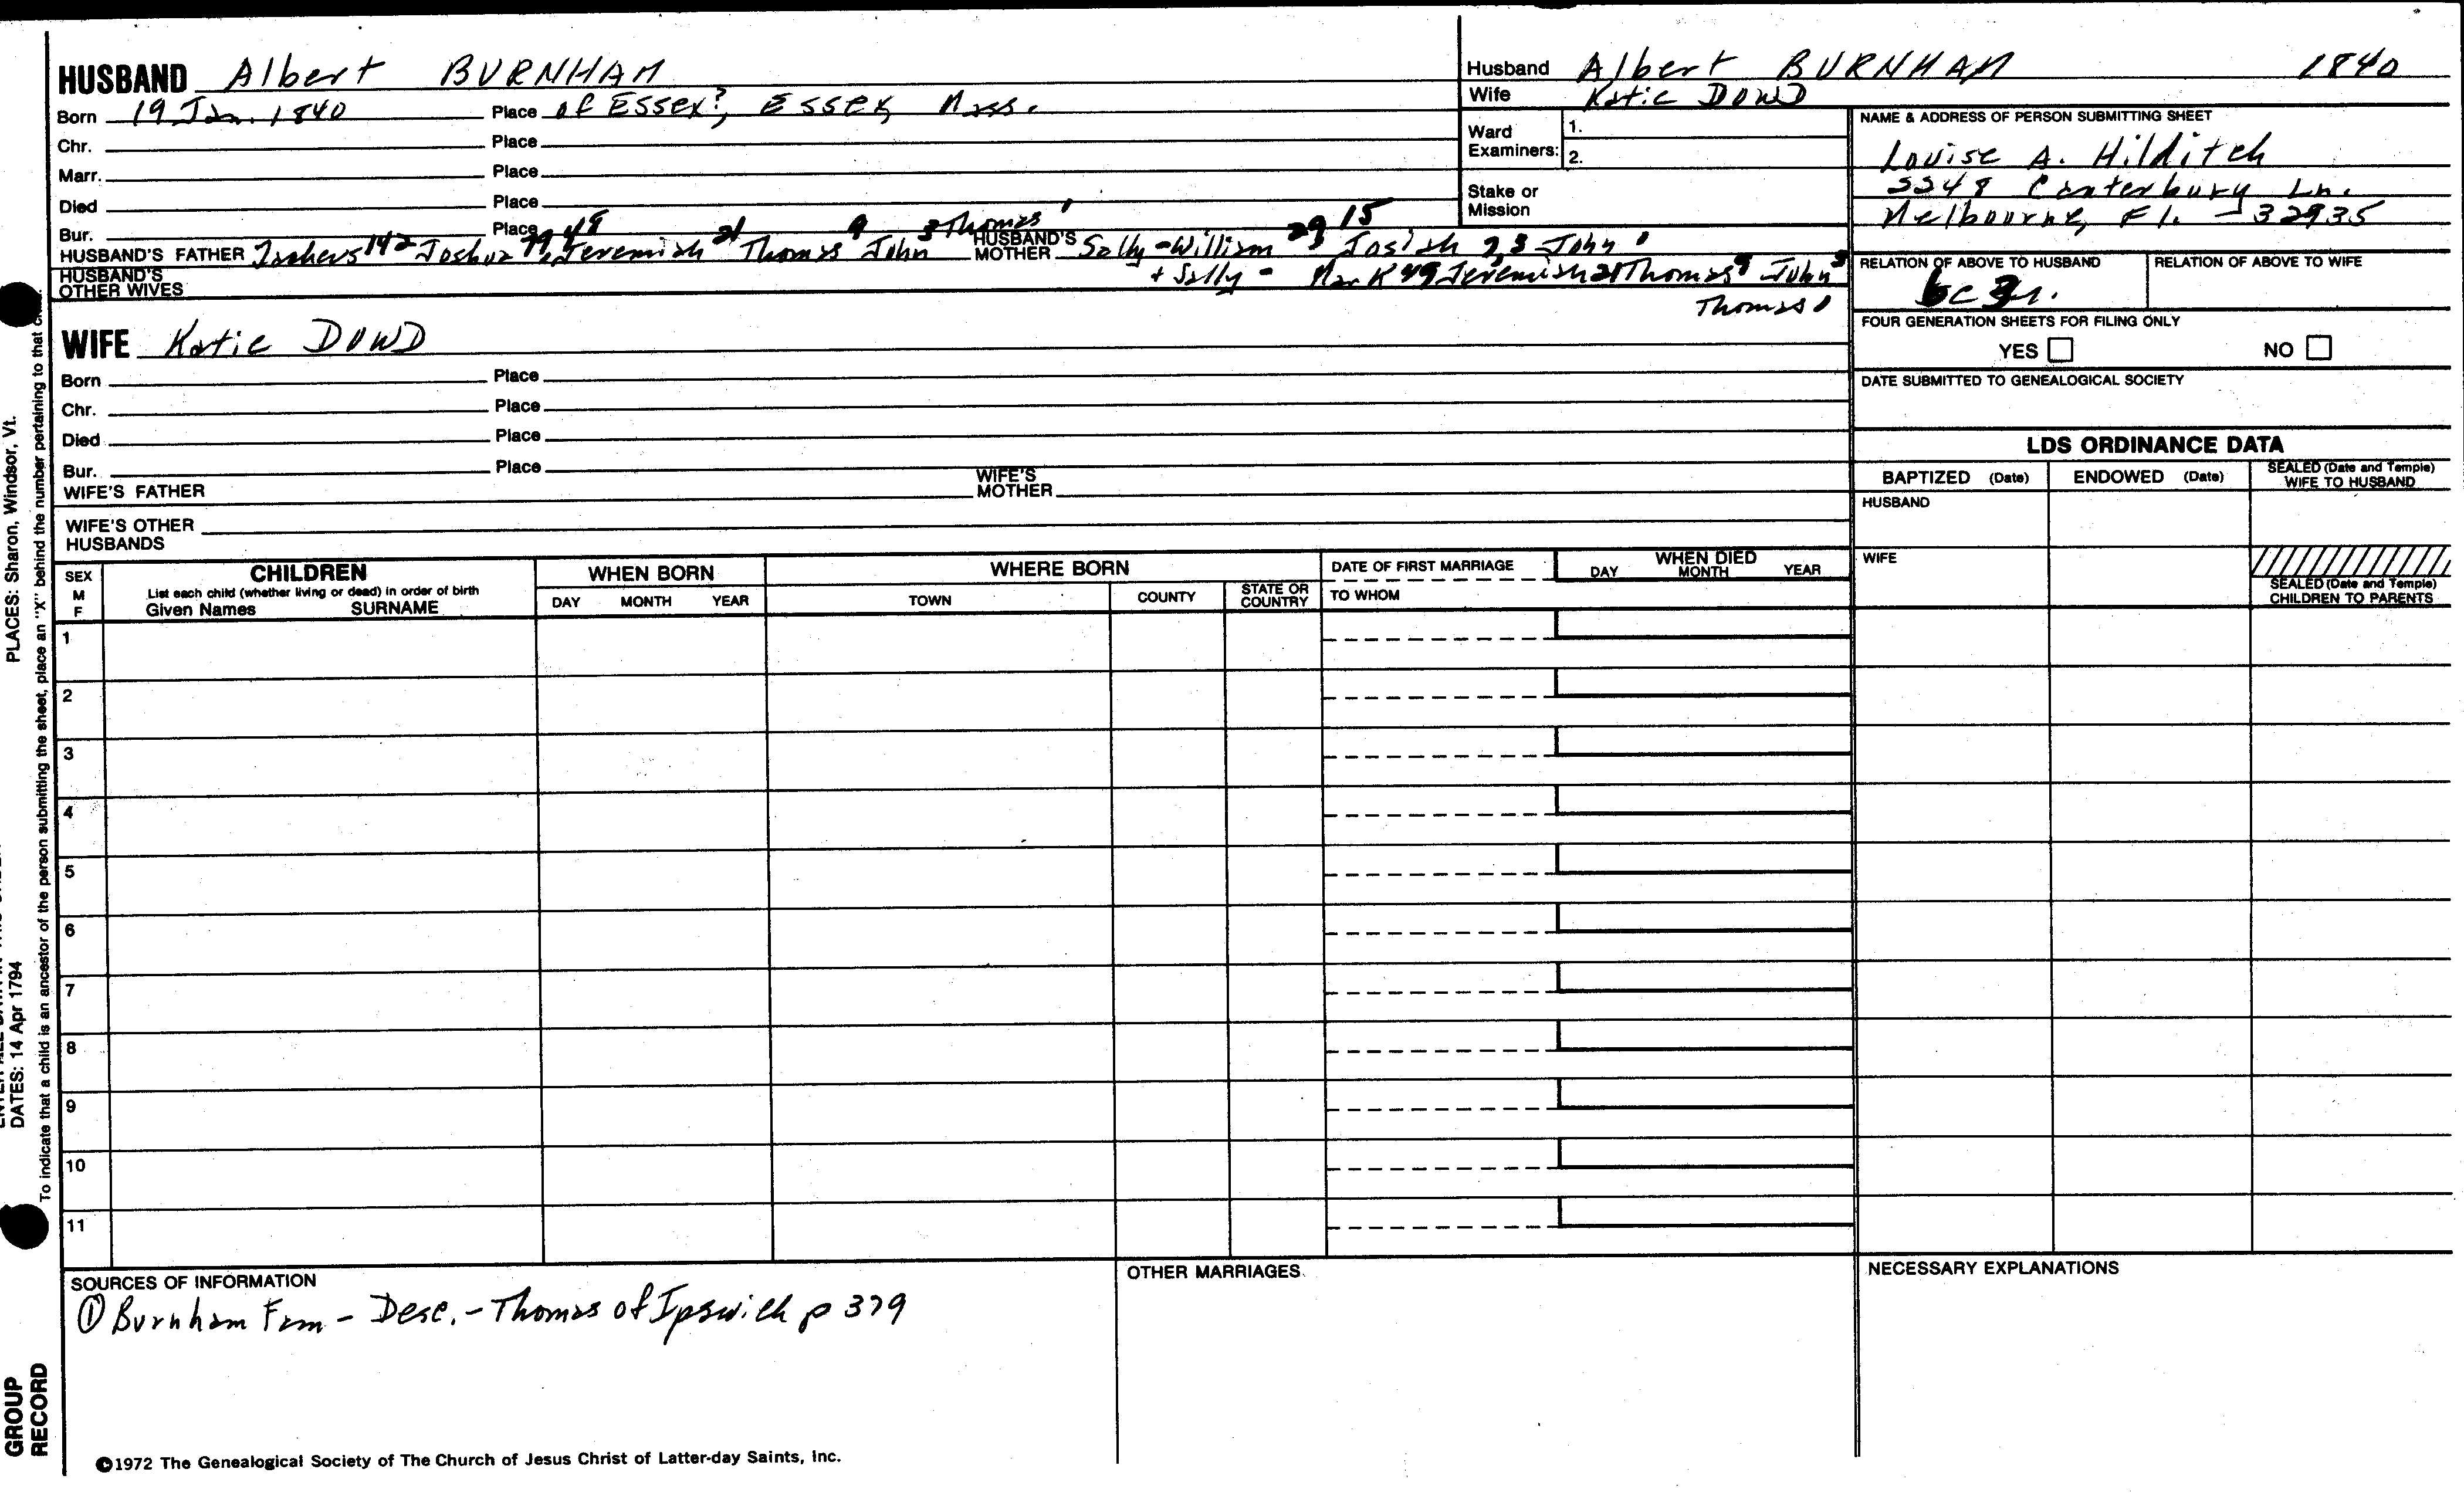 HUSBAND Albert BURNHAM
Born 19 Jan. 1840 Place of Essex?, Essex, Mass.
Chr. Place
Marr. Place
Died Place
Bur. Place
HUSBAND'S FATHER 142 Joshua 79 Jeremiah 48 Thomas 21 John 9 Thomas 3 1 HUSBAND'S MOTHER Sally - William 29 Josiah 15 John 1
+ Sally - Mark 49 Jeremiah 21 Thomas 9 John 3
Thomas 1
HUSBAND'S OTHER WIVES
WIFE Katie DOWD
Born Place
Chr. Place
Died Place
Bur. Place
WIFE'S FATHER WIFE'S MOTHER
WIFE'S OTHER HUSBANDS
Husband Albert BURNHAM 1840
Wife Katie DOWD
Ward Examiners: 1.
2.
Stake or Mission
NAME & ADDRESS OF PERSON SUBMITTING SHEET
Louise A. Hilditch
Canterbury Ln.
Melbourne, Fl. - 32935
RELATION OF ABOVE TO HUSBAND RELATION OF ABOVE TO WIFE
FOUR GENERATION SHEETS FOR FILING ONLY
YES NO
DATE SUBMITTED TO GENEALOGICAL SOCIETY
LDS ORDINANCE DATA
BAPTIZED (Date) ENDOWED (Date) SEALED (Date and Temple) WIFE TO HUSBAND
HUSBAND
WIFE
SEALED (Date and Temple) CHILDREN TO PARENTS
SEX M F CHILDREN WHEN BORN WHERE BORN DATE OF FIRST MARRIAGE WHEN DIED
List each child (whether living or dead) in order of birth
Given Names SURNAME DAY MONTH YEAR TOWN COUNTY STATE OR COUNTRY TO WHOM DAY MONTH YEAR
1
2
3
4
5
6
7
8
9
10
11
SOURCES OF INFORMATION
① Burnham Fam - Desc. - Thomas of Ipswich p 379
OTHER MARRIAGES
NECESSARY EXPLANATIONS
©1972 The Genealogical Society of The Church of Jesus Christ of Latter-day Saints, Inc.
PLACES: Sharon, Windsor, Vt.
DATES: 14 Apr 1794
To indicate that a child is an ancestor of the person submitting the sheet, place an "X" behind the number pertaining to that
GROUP
RECORD